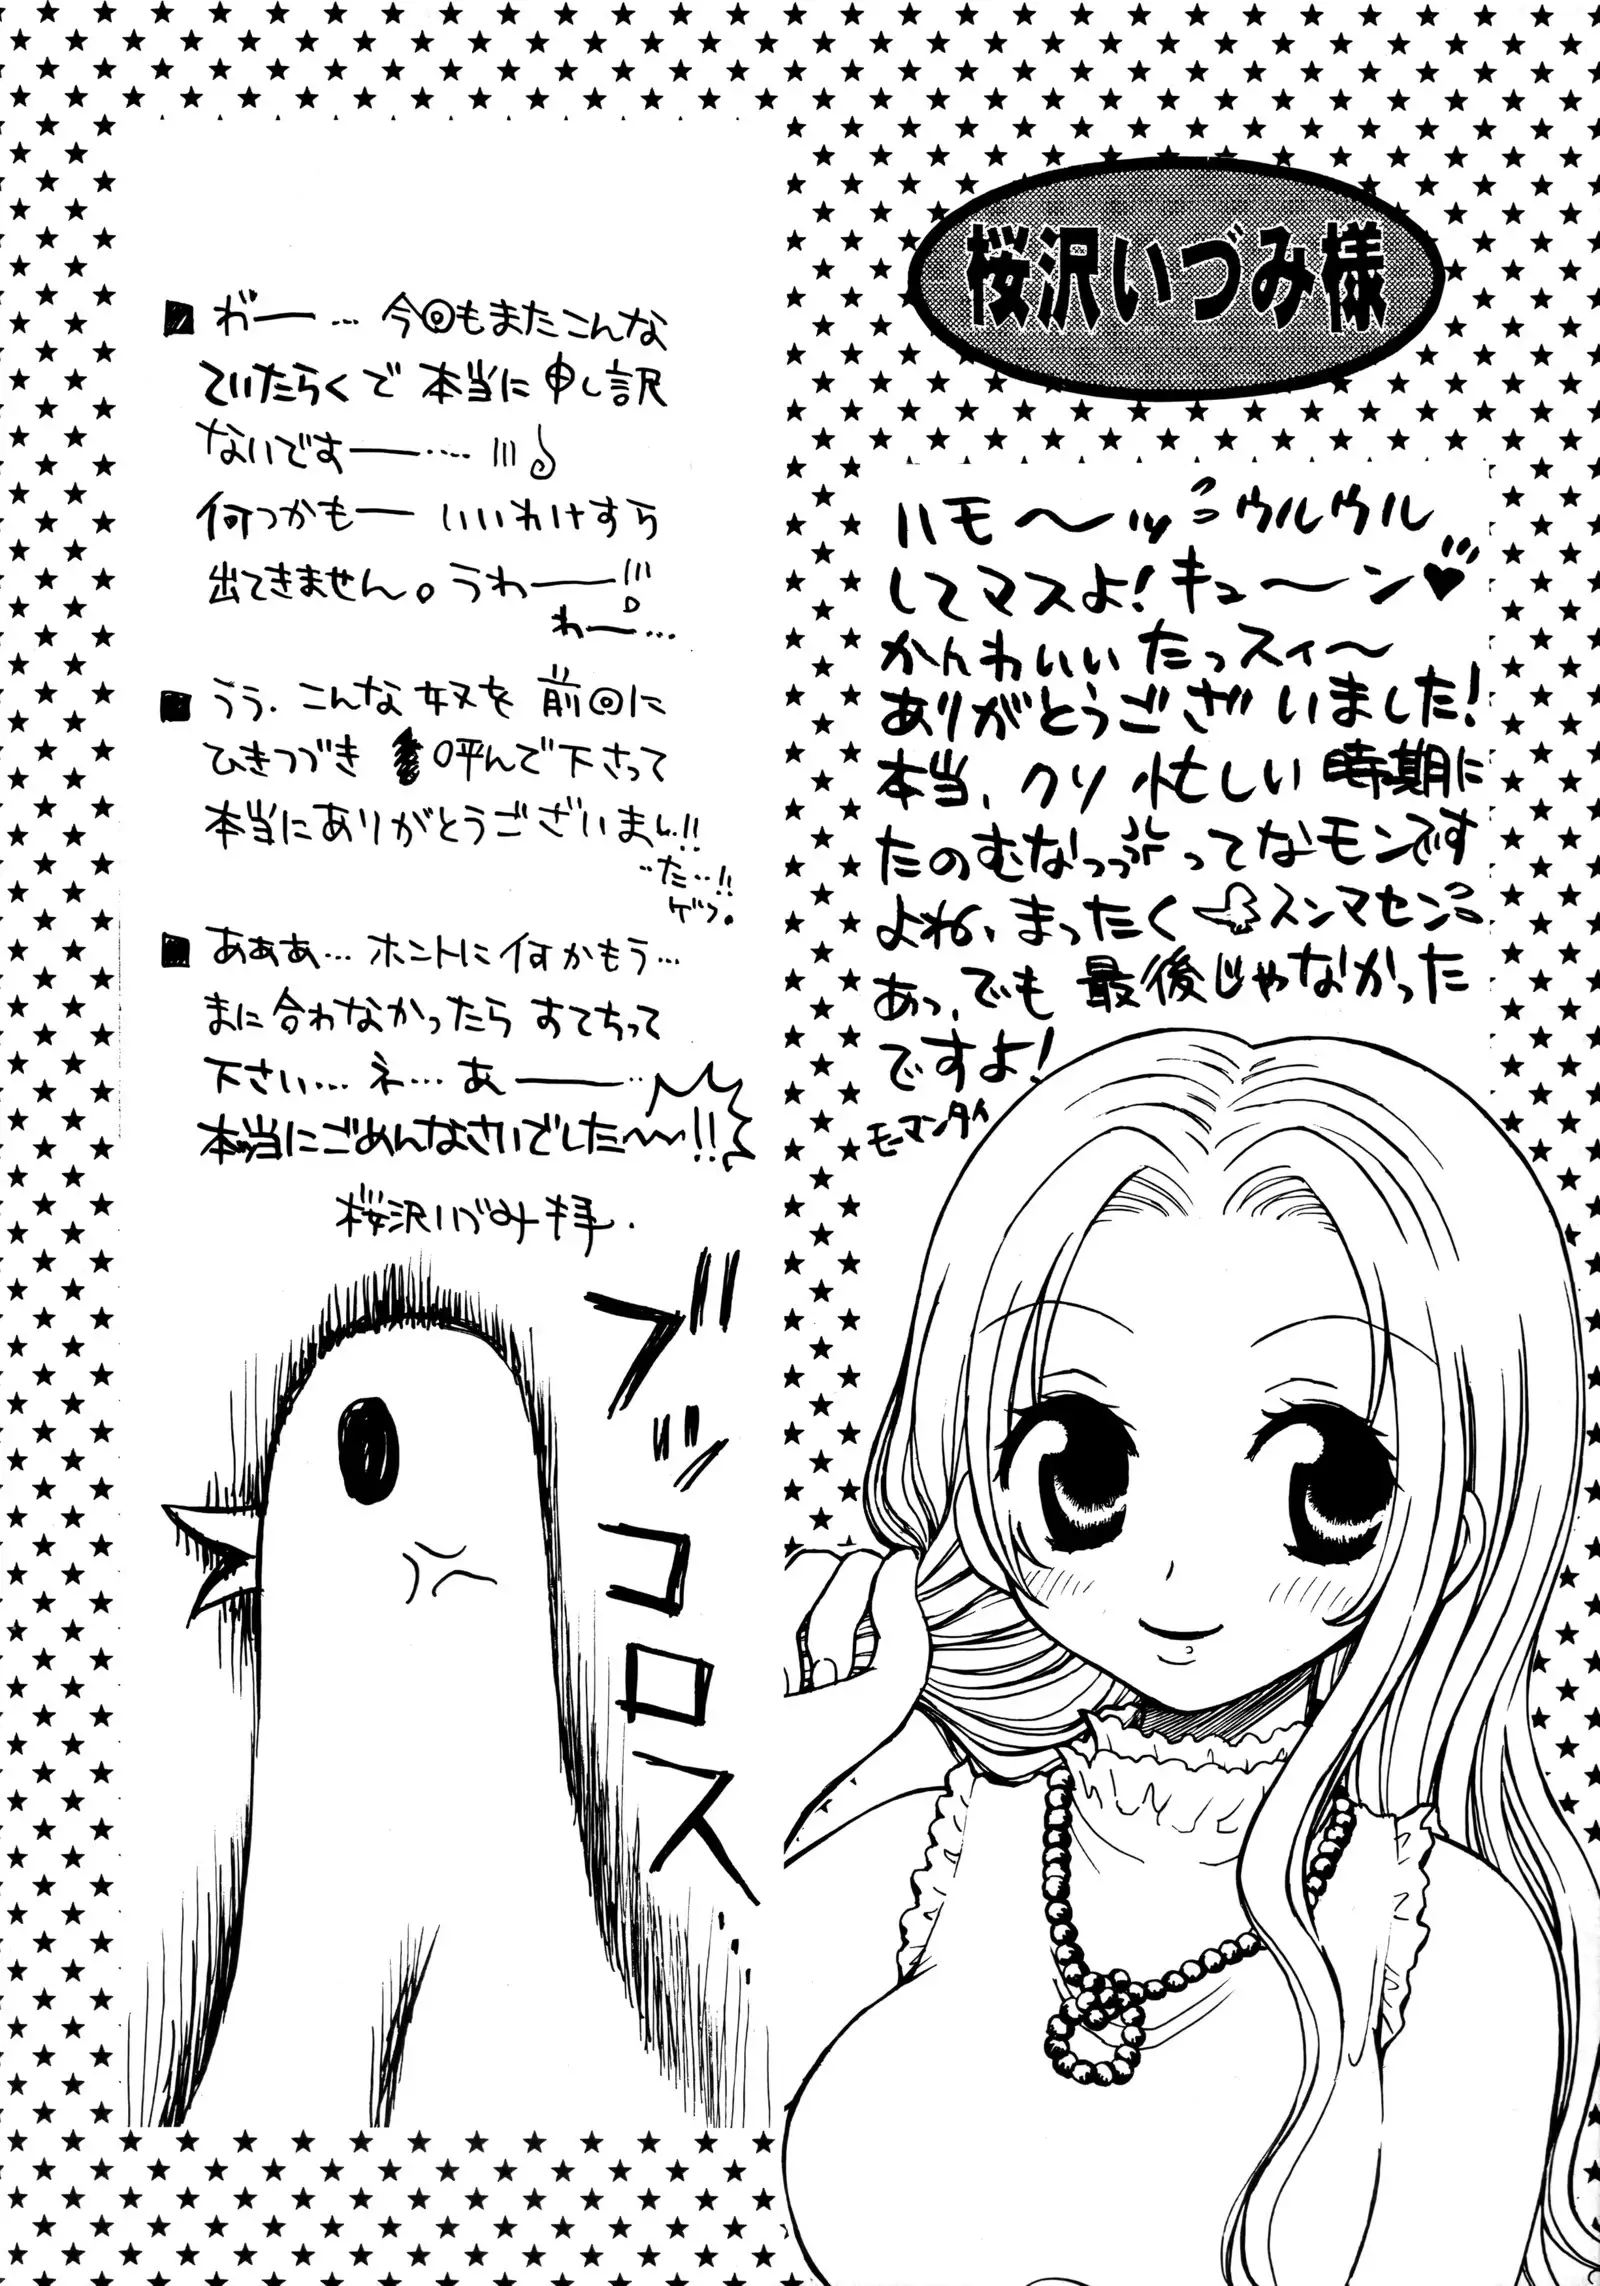 桜沢いづみ様
ハモ〜ッっウルウル
してマスよ!キューン♥
かんわいいたっスィ〜
ありがとうございました!
本当、クソ忙しい時期に
たのむなっっってなモンです
よね、まったくスンマセン
あっ、でも最後じゃなかった
ですよ!
モーマンタイ
■ わ゛ー…今回もまたこんな
ていたらくで本当に申し訳
ないですー‥‥
何つかもーいいわけすら
出てきません。うわー!!!
わー…
■ うう、こんな奴を前回に
ひきつづき呼んで下さって
本当にありがとうございまし!!
‥た‥!!
ゲフ。
■ あああ…ホントに何かもう…
まに合わなかったらすてちって
下さい…ネ…あー‥
本当にごめんなさいでした〜!!
桜沢いづみ拝.
ブッコロス…